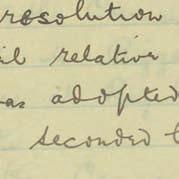 resolution
il relative
as adopted
seconded